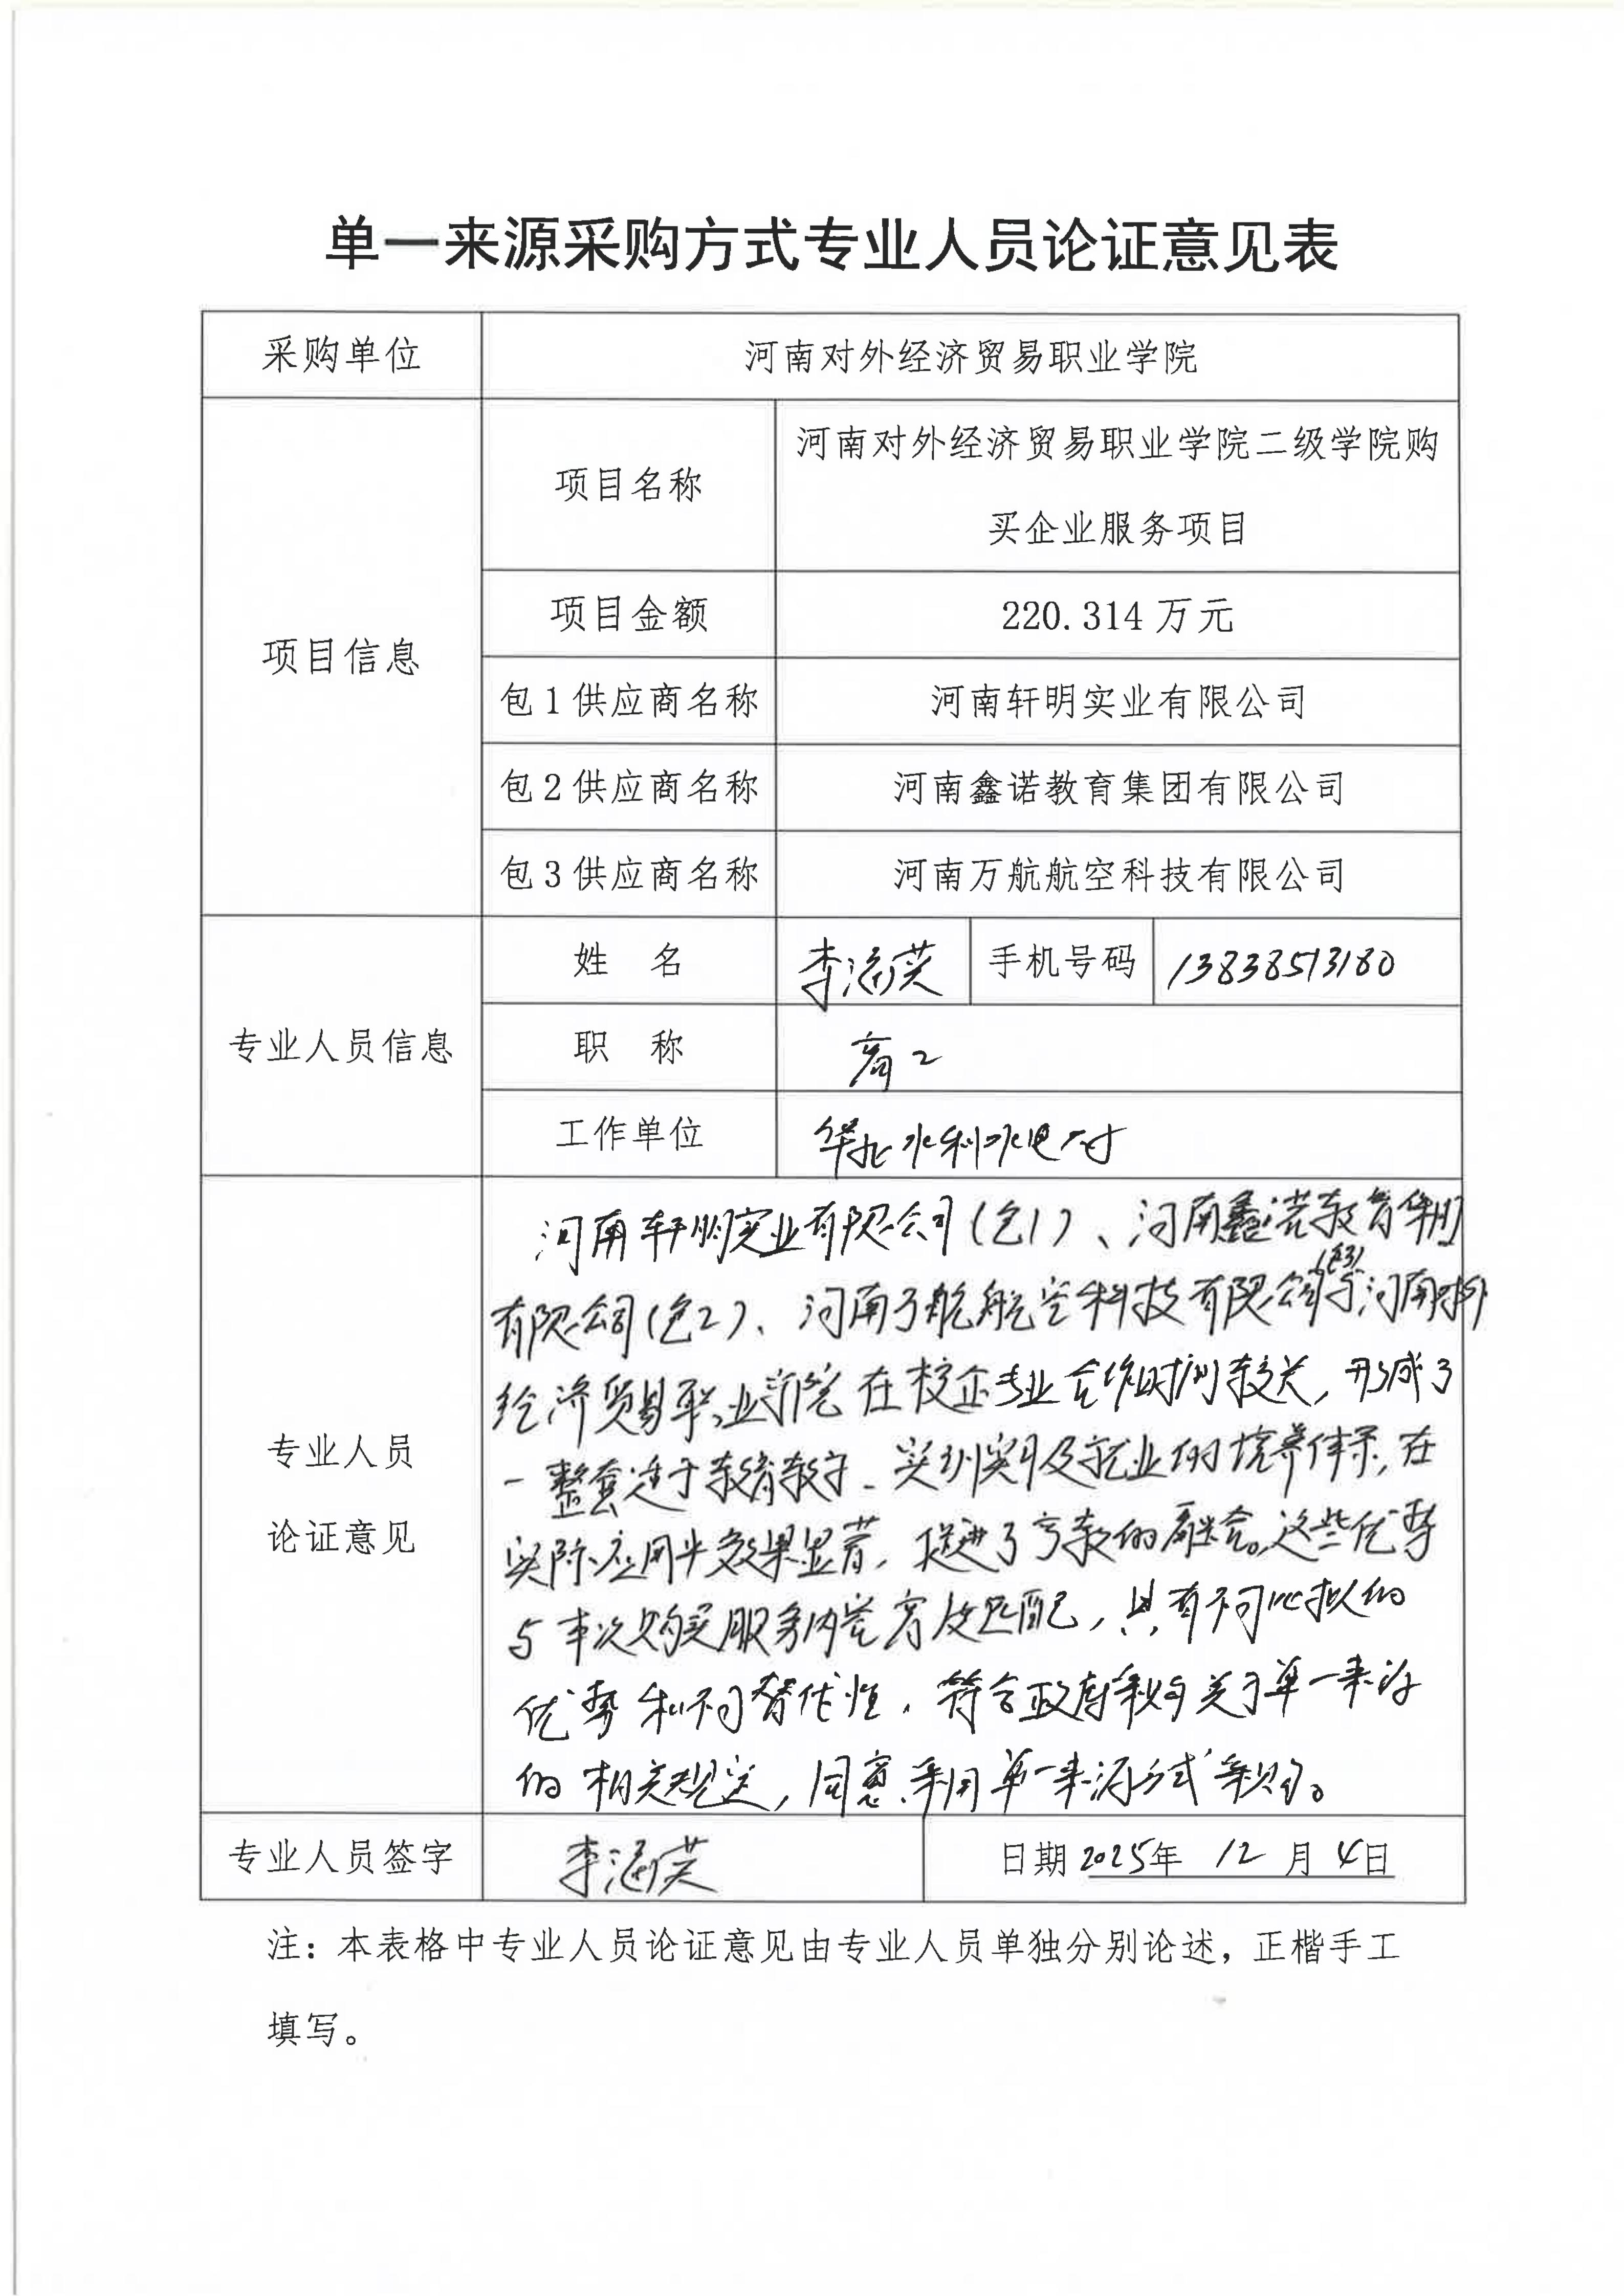 单一来源采购方式专业人员论证意见表
采购单位 河南对外经济贸易职业学院
项目信息
项目名称 河南对外经济贸易职业学院二级学院购
买企业服务项目
项目金额 220.314万元
包1供应商名称 河南轩明实业有限公司
包2供应商名称 河南鑫诺教育集团有限公司
包3供应商名称 河南万航航空科技有限公司
专业人员信息
姓 名 李 手机号码 13838513180
职 称 高工
工作单位 华北水利水电大
专业人员
论证意见
河南轩明实业有限公司(包1)、河南鑫诺教育集团
有限公司(包2)、河南万航航空科技有限公司(包3)与河南对外
经济贸易职业学院在校企专业合作时间较长,形成了
一整套适于教育教学、实训实习及就业的培养体系,在
实际应用中效果显著,促进了产教的融合。这些优势
与本次购买服务内容高度匹配,具有不可比拟的
优势和不可替代性,符合政府采购关于单一来源
的相关规定,同意采用单一来源方式采购。
专业人员签字 李 日期 2025年 12 月 4日
注:本表格中专业人员论证意见由专业人员单独分别论述,正楷手工
填写。